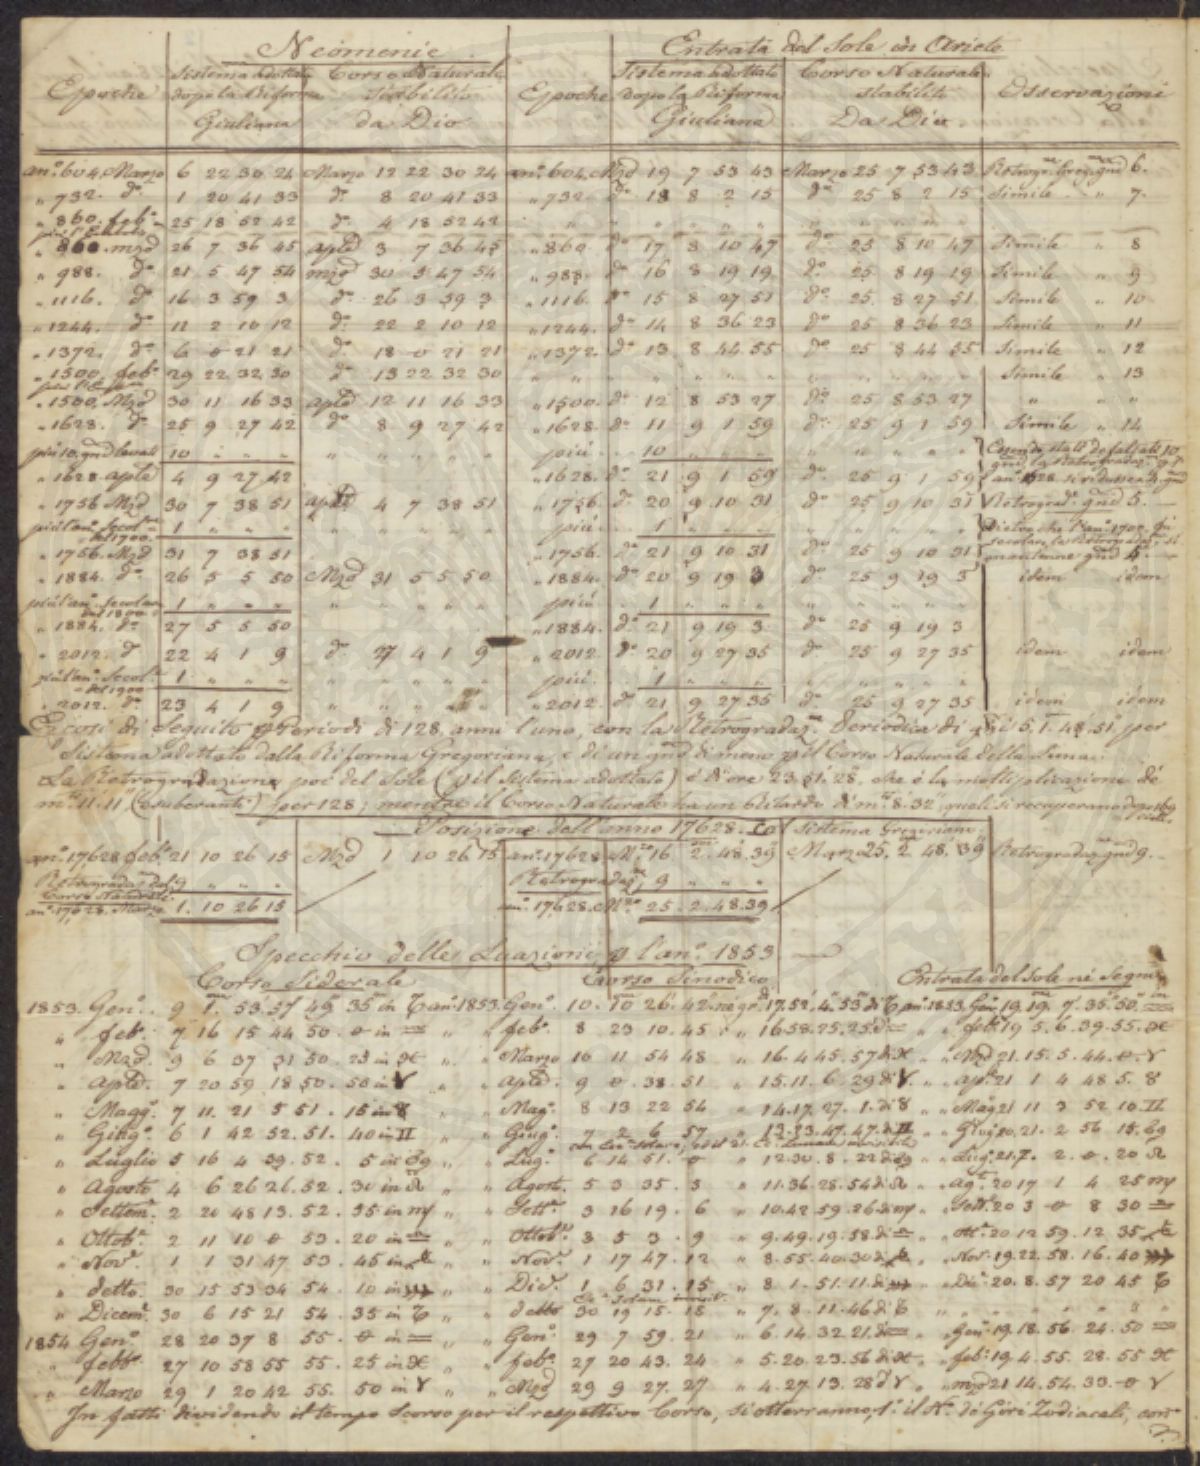 Neomenie Entrata del Sole in Ariete
Epoche Sistema adottato dopo la Riforma Giuliana Corso Naturale stabilito da Dio Epoche Sistema adottato dopo la Riforma Giuliana Corso Naturale stabilito Da Dio Osservazioni
an.º 604. Marzo 6 22 30 24 Marzo 12 22 30 24 an.º 604. Mzo 19 7 53 43 Marzo 25 7 53 43 6.
" 732. d.º 1 20 41 33 d.º 8 20 41 33 " 732. d.º 18 8 2 15 d.º 25 8 2 15 Simile " 7.
" 860. feb.º 25 18 52 42 d.º 4 18 52 42
" 860. mzo 26 7 36 45 aple 3 7 36 45 " 860 d.º 17 8 10 47 d.º 25 8 10 47 Simile " 8
" 988. d.º 21 5 47 54 mzo 30 5 47 54 " 988. d.º 16 8 19 19 d.º 25 8 19 19 Simile " 9
" 1116. d.º 16 3 59 3 d.º 26 3 59 3 " 1116. d.º 15 8 27 51 d.º 25 8 27 51 Simile " 10
" 1244. d.º 11 2 10 12 d.º 22 2 10 12 " 1244. d.º 14 8 36 23 d.º 25 8 36 23 Simile " 11
" 1372. d.º 6 0 21 21 d.º 18 0 21 21 " 1372. d.º 13 8 44 55 d.º 25 8 44 55 Simile " 12
" 1500. feb.º 29 22 32 30 d.º 13 22 32 30 Simile " 13
" 1500. Mzo 30 11 16 33 aple 12 11 16 33 " 1500. d.º 12 8 53 27 d.º 25 8 53 27 " "
" 1628. d.º 25 9 27 42 d.º 8 9 27 42 " 1628. d.º 11 9 1 59 d.º 25 9 1 59 Simile " 14
più 10. gni levati 10 " " " più 10 " " " Essendo stati defalcati 10
" 1628. aple 4 9 27 42 " 1628. d.º 21 9 1 59 d.º 25 9 1 59
" 1756 Mzo 30 7 38 51 aple 4 7 38 51 " 1756. d.º 20 9 10 31 d.º 25 9 10 31 Retrograd.e gni 5.
più l'an.º Secol. del 1700. 1 " " " più 1 " " "
" 1756. Mzo 31 7 38 51 " 1756. d.º 21 9 10 31 d.º 25 9 10 31 gni 4.
" 1884. d.º 26 5 5 50 Mzo 31 5 5 50 " 1884. d.º 20 9 19 3 d.º 25 9 19 3 idem idem
più l'an.º Secolare del 1800 1 " " " più 1 " " "
" 1884. d.º 27 5 5 50 " 1884. d.º 21 9 19 3 d.º 25 9 19 3
" 2012. d.º 22 4 1 9 d.º 27 4 1 9 " 2012. d.º 20 9 27 35 d.º 25 9 27 35 idem idem
più l'an.º Secol.e del 1900 1 " " " più 1 " " "
" 2012. d.º 23 4 1 9 " 2012 d.º 21 9 27 35 d.º 25 9 27 35 idem idem
E così di Seguito p Periodi di 128. anni l'uno, con la Retrogradaz.ne Periodica di gni 5. 1. 48. 51. per
Sistema adottato dalla Riforma Gregoriana, e di un gno di meno p il Corso Naturale della Luna.
La Retrogradazione poi del Sole (p il Sistema adottato) è d'ore 23. 51. 28. che è la moltiplicazione de'
m.ti 11. 11. (esuberanti) per 128; mentre il Corso Naturale ha un Ritardo di m.ti 8. 32, quali si recuperano dopo
Posizione dell'anno 17628. Col Sistema Gregoriano
an.º 17628 feb.º 21 10 26 15 Mzo 1 10 26 15 an.º 17628. M.zo 16 2. 48. 39 Marzo 25. 2. 48. 39 Retrogradaz. gni 9.
Retrogradaz. del Corso Naturale 9 " " " Retrogradaz. 9 " " "
an.º 17628. Marzo 1. 10 26 15 an.º 17628. M.zo 25. 2. 48. 39
Specchio delle Lunazioni p l'an.º 1853
Corso Siderale Corso Sinodico Entrata del Sole ne' Segni
1853. Gen.º 9 1. 53. 57 49 35 in ♑ an.º 1853. Gen.º 10. 10 26. 42. 17. 52. 4. 53 di ♑ an.º 1853. Gen. 19. 19. 7. 35. 50. in ♒
" feb.º 7 16 15 44 50. 0 in ♒ " " feb.º 8 23 10. 45 " 16. 58. 25. 25 di ♒ " feb.º 19 5. 6. 39. 55. ♓
" Mzo. 9 6 37 31 50. 25 in ♓ " " Marzo 10 11 54 48 " 16. 4. 45. 57 di ♓ " " Mzo 21. 15. 5. 44. 0. ♈
" aple. 7 20 59 18 50. 50 in ♈ " " aple. 9 0. 38. 51 " 15. 11. 6. 29 di ♈ " " ap.e 21 1 4 48 5. ♉
" Magg.º 7 11. 21 5 51. 15 in ♉ " " Mag.º 8 13 22 54 " 14. 17. 27. 1. di ♉ " " Mag. 21 11 3 52 10 ♊
" Giug.º 6 1 42 52. 51. 40 in ♊ " " Giug.º 7 2 6 57 " 13. 23. 47. 47. di ♊ " Giug. 20. 21. 2 56 15. ♋
" Luglio 5 16 4 39. 52. 5 in ♋ " " Lug.º 6 14. 51. 0 " 12. 30. 8. 22 di ♋ " " Lug. 21. 7. 2. 0. 20 ♌
" Agosto 4 6 26 26. 52. 30 in ♌ " " Agost. 5 3 35. 3 " 11. 36. 28. 54 di ♌ " " Ag.to 20 17 1 4 25 ♍
" Settem.e 2 20 48 13. 52. 55 in ♍ " " Sett.e 3 16 19. 6 " 10. 42 59. 26 di ♍ " Sett.e 20 3 0 8 30 ♎
" Ottob.e 2 11 10 0 53. 20 in ♎ " " Ottob.e 3 5 3. 9 " 9. 49. 19. 58 di ♎ " " Ott.e 20 12 59. 12 35 ♏
" Nov.e 1 1 31 47 53. 45 in ♏ " " Nov.e 1 17 47. 12 " 8. 55. 40. 30 di ♏ " " Nov. 19. 22. 58. 16. 40 ♐
" detto. 30 15 53 34 54. 10 in ♐ " " Dic.e 1 6 31. 15 " 8 1. 51. 11. di ♐ " " Dic.e 20. 8. 57 20 45 ♑
" Dicem.e 30 6 15 21 54. 35 in ♑ " " detto 30 19 15. 18 " 7. 8. 11. 46 di ♑
1854 Gen.º 28 20 37 8 55. 0 in ♒ " " Gen.º 29 7 59. 21 " 6. 14. 32 21. di ♒ " Gen.º 19. 18. 56. 24. 50 ♒
" febb.º 27 10 58 55 55. 25 in ♓ " " feb.º 27 20 43. 24 " 5. 20. 23. 56 di ♓ " feb.º 19 4. 55. 28. 55 ♓
" Marzo 29 1 20 42 55. 50 in ♈ " " Mzo 29 9 27. 27 " 4. 27. 13. 28 d ♈ " mzo 21 14. 54. 33. 0 ♈
In fatti dividendo il tempo scorso per il respettivo Corso, si otterranno, 1.º il N.º de' Giri Zodiacali,